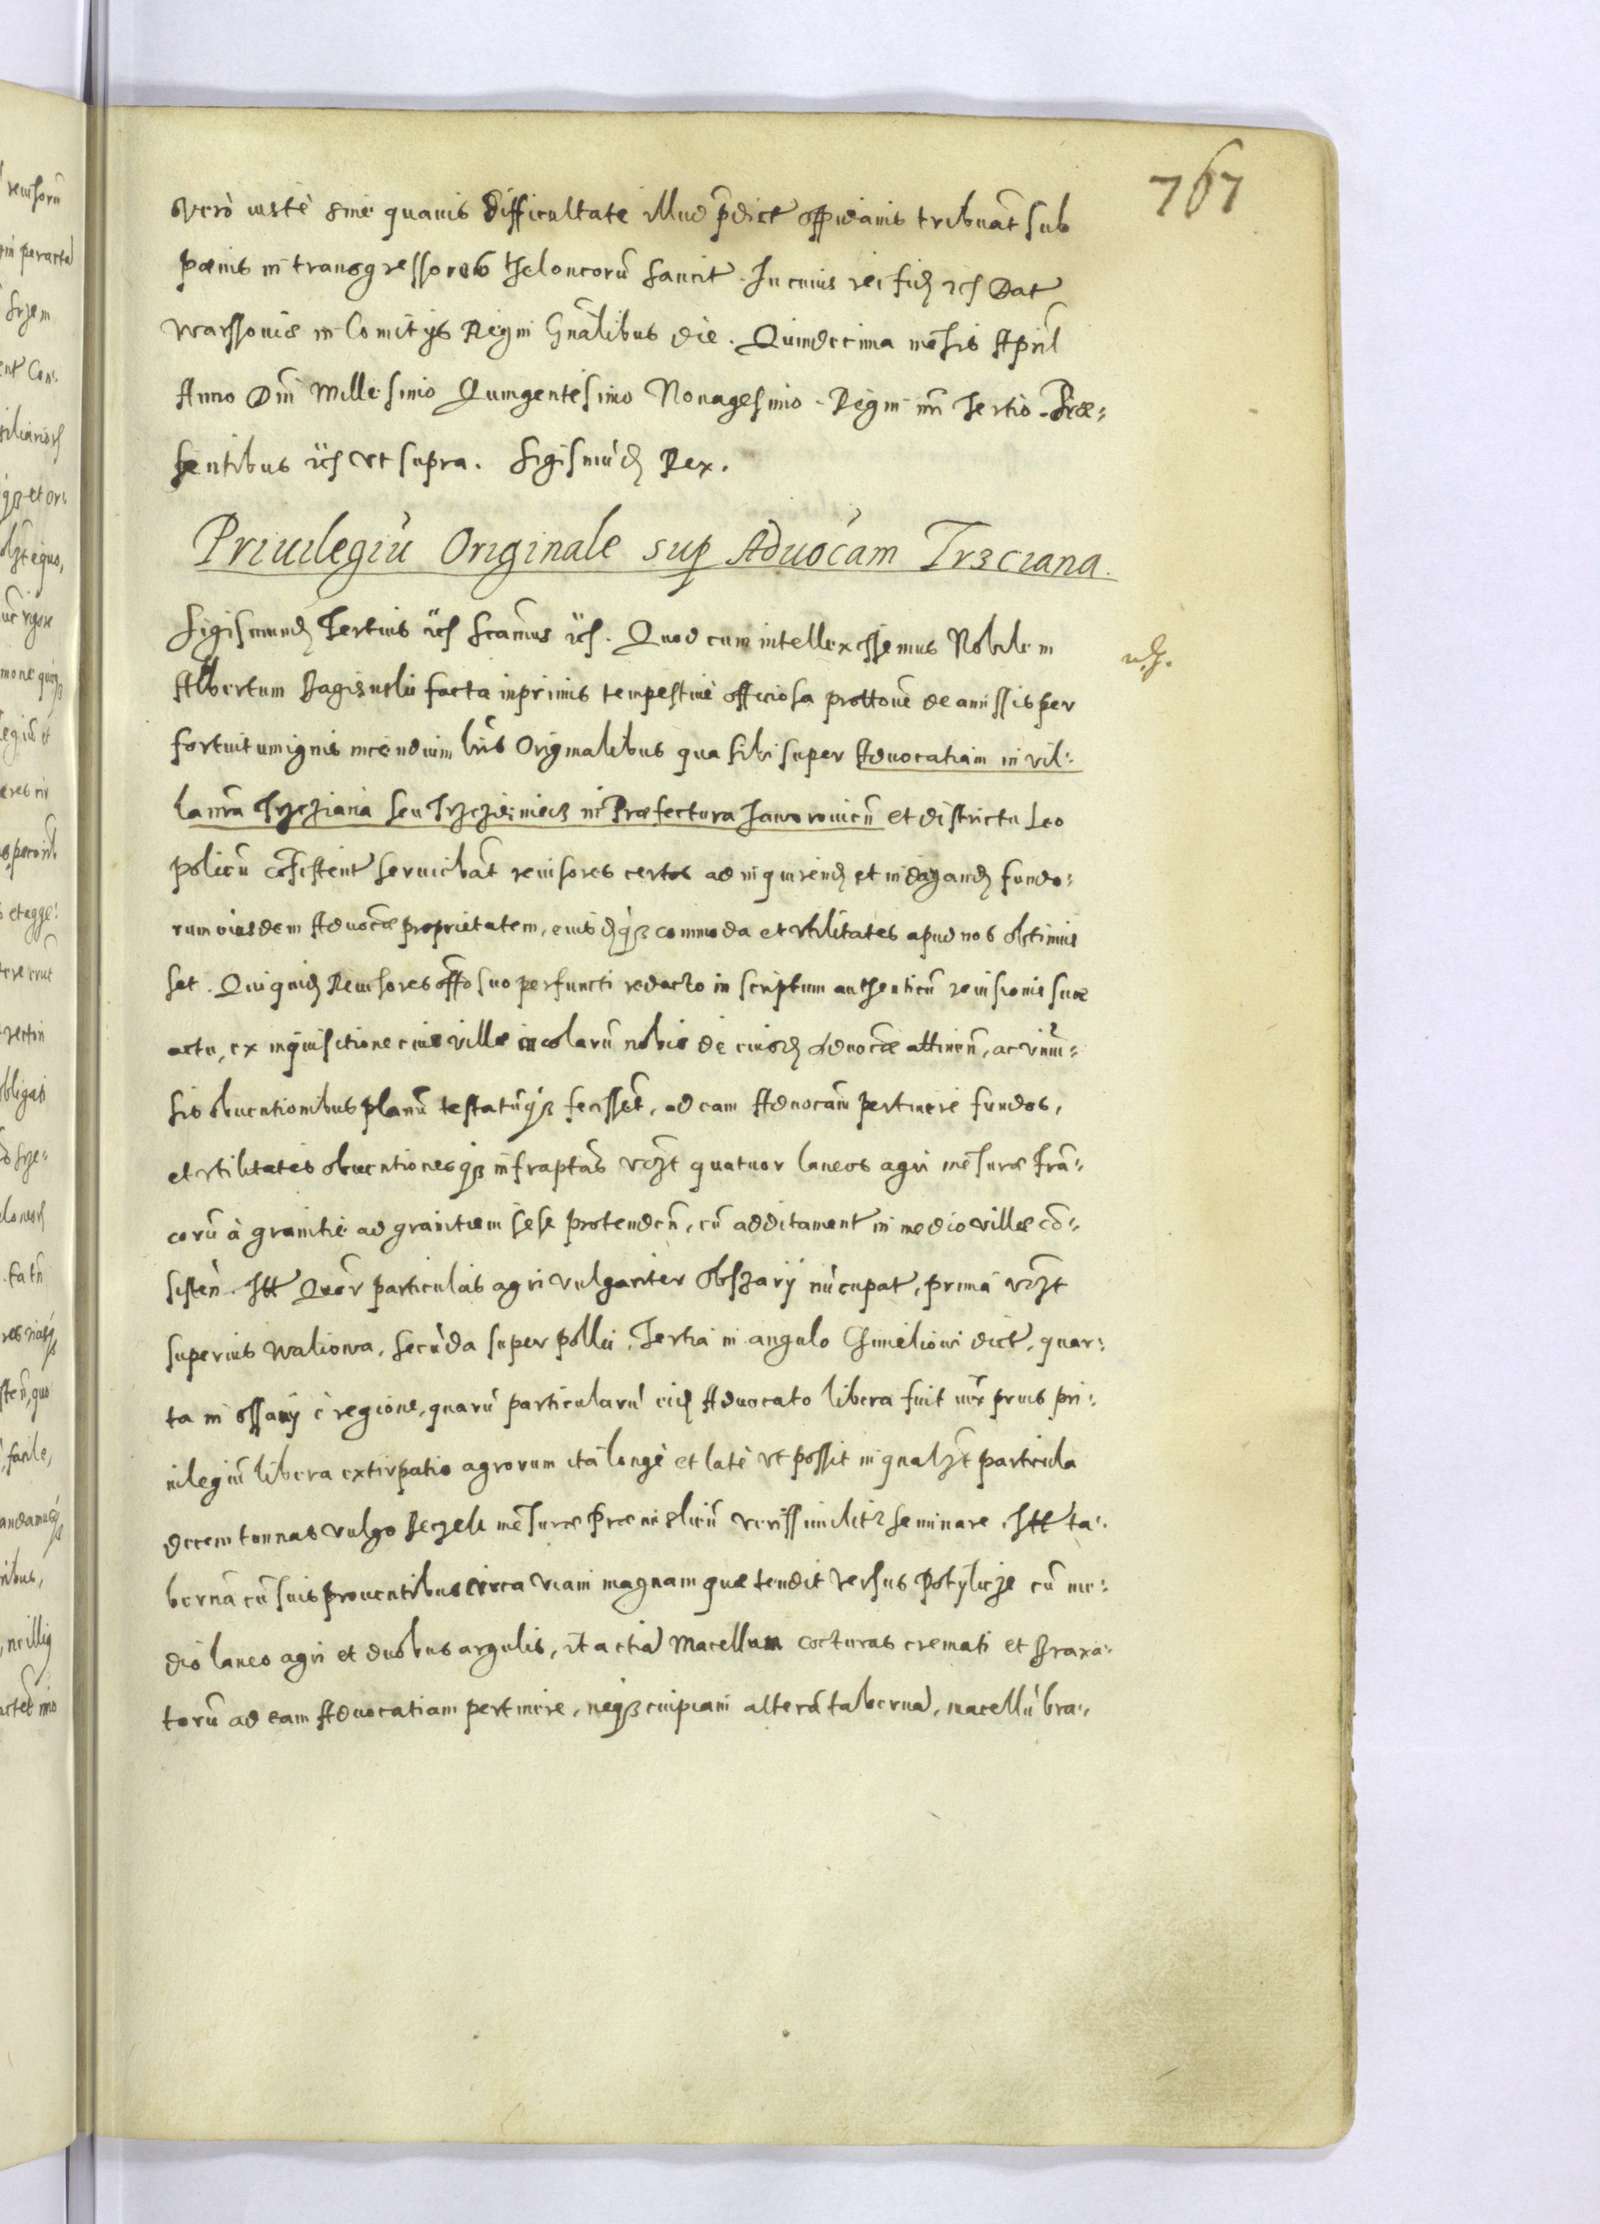 767
verò iustè sine quauis difficultate illud p̃dict oppidanis tribuãt sub
poenis in transgressores theloneorũ sancit. In cuius rei fid etc Dat
Warssouiæ in Comitijs Regni Gñalibus die. Quindecima mẽsis April
Anno Dni Millesimo Quingentesimo Nonagesimo. Regni nri Tertio. Præ:
sentibus etc vt supra. Sigismũd Rex.
Priuilegiũ Originale sup Aduocam Trzciana.
Sigismund Tertius etc Scamus etc. Quod cum intellexissemus Nobilem
Albertum facta inprimis tempestiuè officiosa prottone de amissis per
fortuitum ignis incendium lris Originalibus qua sibi super Aduocatiam in vil:
la nra Trzcziana seu in Præfectura Jaworouien et districtu Leo
polien cõsistent seruiebãt reuisores certos ad inquirend et indagand fundo:
rum eiusdem Aduocãe proprietatem, eiusdqz commoda et vtilitates apud nos obtinuis
set. Qui quid Reuisores offo suo perfuncti redacto in scriptum authenticũ reuisionis suæ
actu, ex inquisitione eius villæ incolarũ nobis de eiusd aduocãe attinen, ac vniu:
sis obuentionibus planũ testatũqz fecissẽt, ad eam Aduocam pertinere fundos,
et vtilitates obuentionesqz infraptas vczt quatuor laneos agri mẽsuræ Frã:
corũ à granitie ad granitiem sese protenden, cũ additament in medio villæ cõ:
sisten. Itt Quor particulas agri vulgariter Obszary nũcupat, prima vczt
superius Waliowa, secũda super polku, Tertia in angulo Chmieliowi dict, quar:
ta in ossany è regione, quarũ particularũ eid Aduocato libera fuit iux prius pri:
uilegiũ libera extirpatio agrorum ita longè et latè vt possit in qualzt particula
decem tonnas vulgo Beczek mẽsuræ Præmislien verissimiliter seminare. Itt ta:
bernã cũ suis prouentibus circa viam magnam quæ tendit versus Potylicze cũ me:
dio laneo agri et duobus argulis, it actia Macellum cocturas cremati et Braxa:
torũ ad eam Aduocatiam pertinere, neqz cuipiam alterã tabernã, macellũ bra: